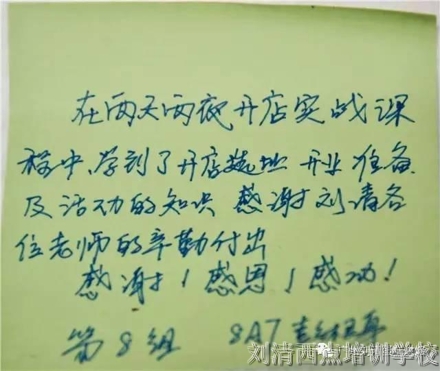 在两天两夜开店实战课
程中,学到了开店选址 开业准备
及活动的知识 感谢刘清各
位老师的辛勤付出
感谢!感恩!感动!
第8组 8A7
刘清西点培训学校